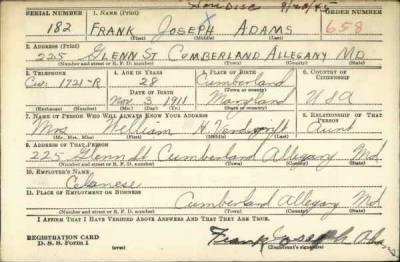 Hon Disc 9/20/45
SERIAL NUMBER 1. NAME (Print) ORDER NUMBER
182 FRANK JOSEPH ADAMS 658
(First) (Middle) (Last)
2. ADDRESS (Print)
225 GLENN ST CUMBERLAND ALLEGANY MD
(Number and street or R. F. D. number) (Town) (County) (State)
3. TELEPHONE 4. AGE IN YEARS 5. PLACE OF BIRTH 6. COUNTRY OF CITIZENSHIP
1721-R 28 Cumberland
DATE OF BIRTH (Town or county)
Nov 3 1911 Maryland USA
(Exchange) (No.) (Mo.) (Day) (Yr.) (State or country)
7. NAME OF PERSON WHO WILL ALWAYS KNOW YOUR ADDRESS 8. RELATIONSHIP OF THAT PERSON
Mrs William H. Aunt
(Mr., Mrs., Miss) (First) (Middle) (Last)
9. ADDRESS OF THAT PERSON
225 Glenn St Cumberland Allegany Md
(Number and street or R. F. D. number) (Town) (County) (State)
10. EMPLOYER'S NAME
Celanese
11. PLACE OF EMPLOYMENT OR BUSINESS
Cumberland Allegany Md
(Number and street or R. F. D. number) (Town) (County) (State)
I AFFIRM THAT I HAVE VERIFIED ABOVE ANSWERS AND THAT THEY ARE TRUE.
REGISTRATION CARD
D. S. S. FORM 1 (over) Frank Joseph Adams
(Registrant's signature)